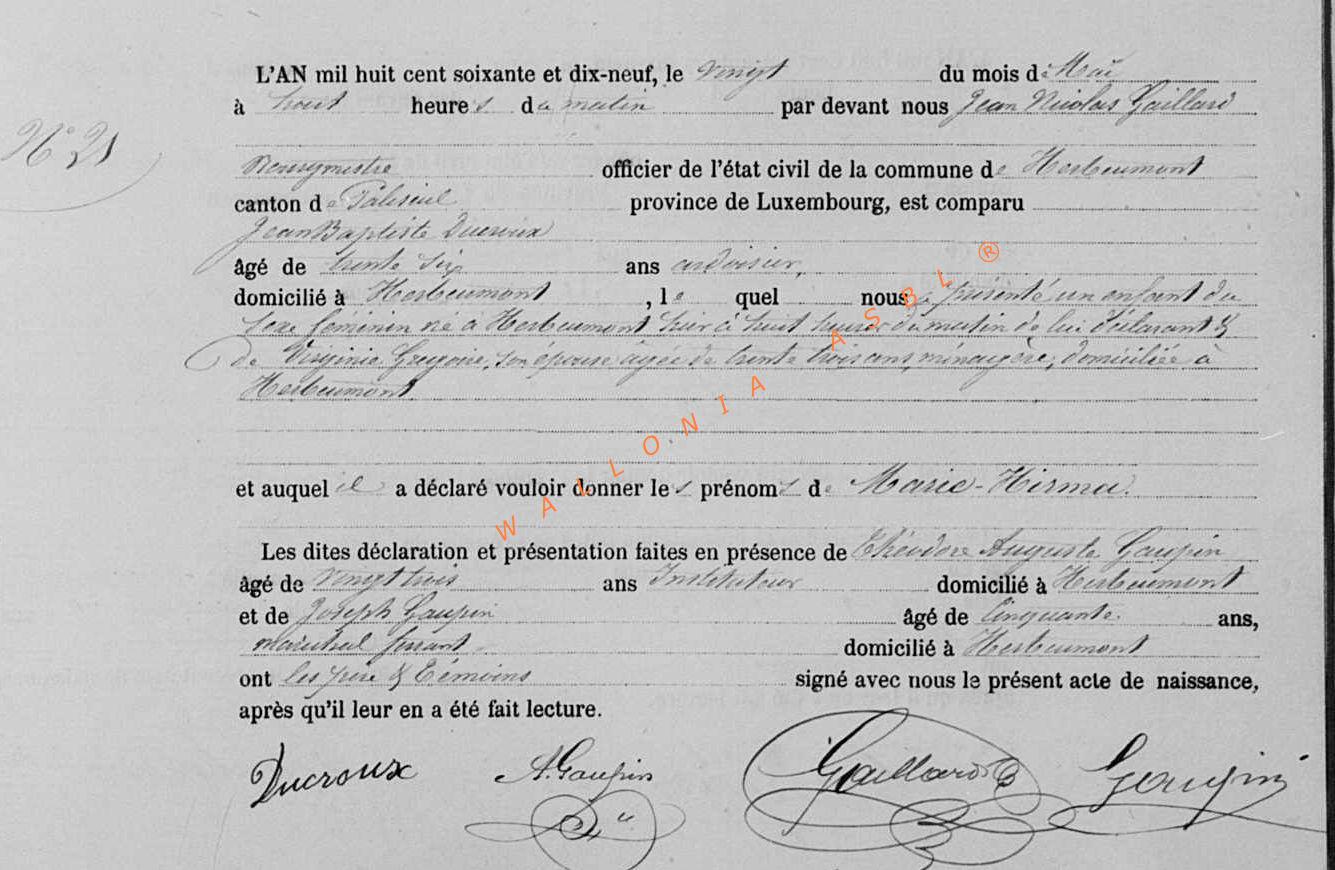 L'AN mil huit cent soixante et dix-neuf, le vingt du mois de Mai
à huit heures du matin par devant nous Jean Nicolas Gaillard
N° 21
Bourgmestre officier de l'état civil de la commune de Herbeumont
canton de Paliseul province de Luxembourg, est comparu
Jean Baptiste Ducroux
âgé de trente six ans ardoisier,
domicilié à Herbeumont, lequel nous a présenté un enfant du
sexe féminin né à Herbeumont hier à huit heures du matin de lui déclarant &
de Virginie Gregoire, son épouse âgée de trente trois ans, ménagère, domiciliée à
Herbeumont
et auquel il a déclaré vouloir donner les prénoms de Marie-Hirma.
Les dites déclaration et présentation faites en présence de Théodore Auguste Gaupin
âgé de vingt trois ans Instituteur domicilié à Herbeumont
et de Joseph Gaupin âgé de cinquante ans,
maréchal ferrant domicilié à Herbeumont
ont les père & témoins signé avec nous le présent acte de naissance,
après qu'il leur en a été fait lecture.
Ducroux A. Gaupin Gaillard Gaupin
WALLONIA ASBL ®